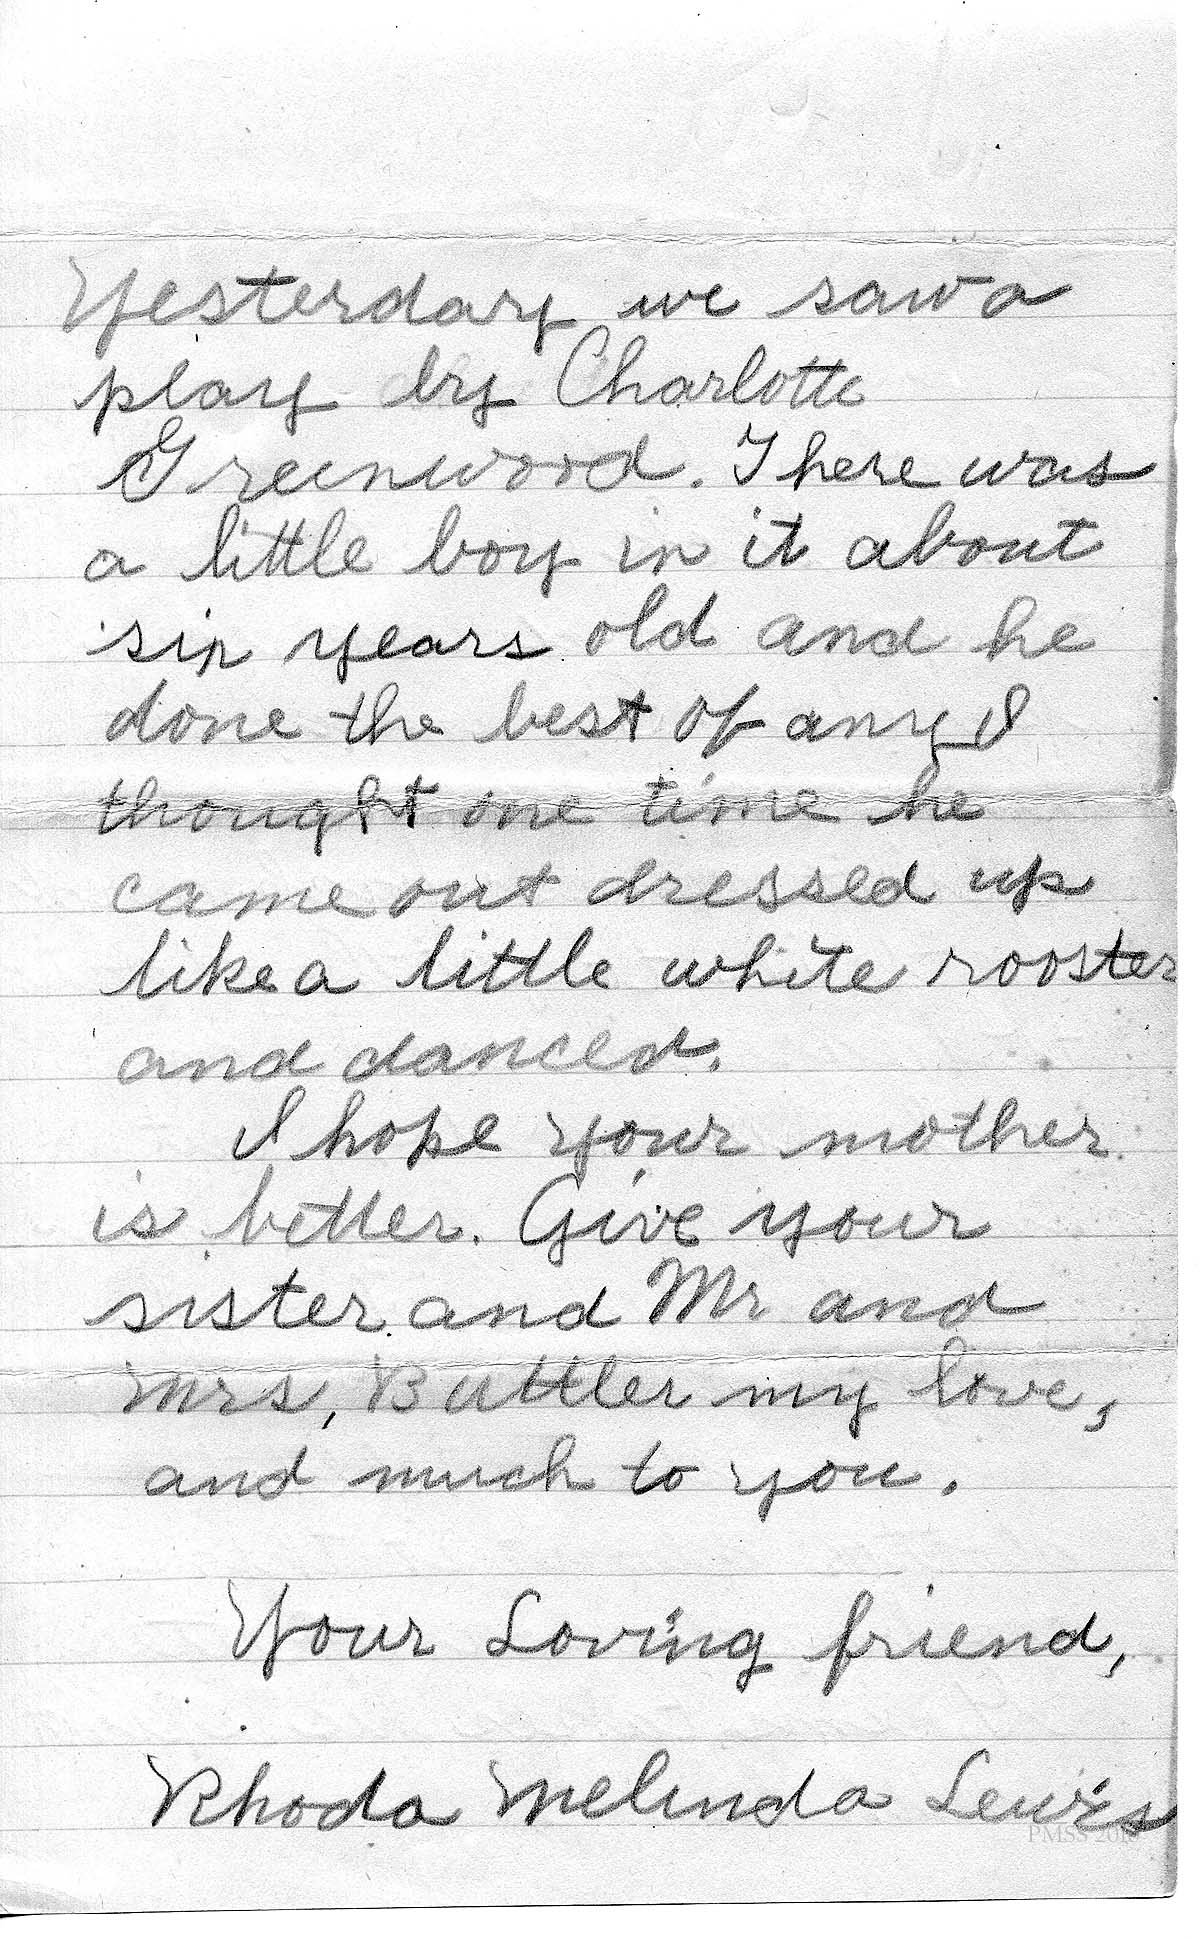 Yesterday we saw a
play by Charlotte
Greenwood. There was
a little boy in it about
six years old and he
done the best of any I
thought one time he
came out dressed up
like a little white rooster
and danced.
I hope your mother
is better. Give your
sister and Mr and
Mrs, Buttler my love,
and much to you.
Your Loving friend,
Rhoda Melinda Lewis